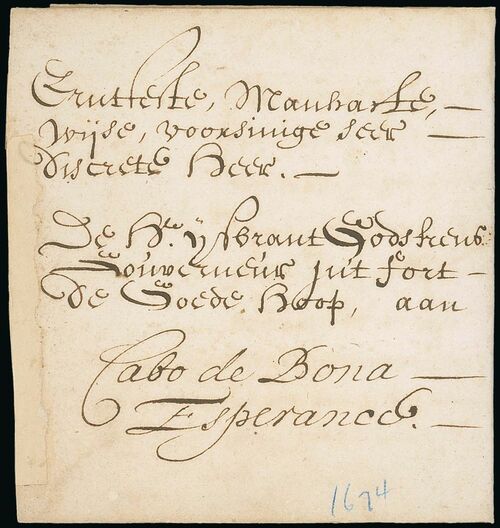 Erntfeste, Manhafte, —
wijse, voorsinige seer —
discrete Heer. —
De Hr. ijsbrant Godskens
Gouverneur int fort —
de Goede Hoop, aan
Cabo de Bona —
Esperance. —
1674